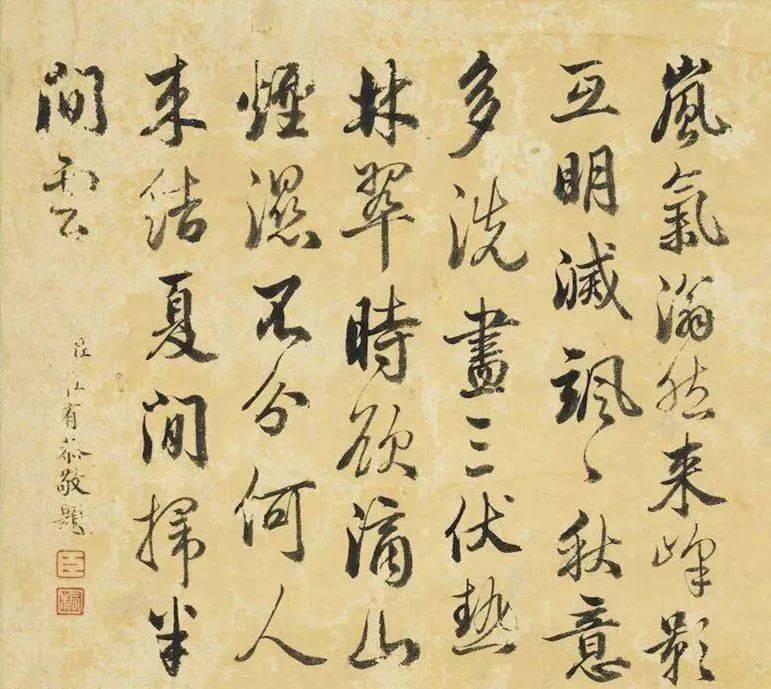 嵐氣滃然来峰影
互明滅颯〻秋意
多洗盡三伏熱
林翠時欲滴山
煙濕不分何人
来結夏間掃半
間雲
臣莊有恭敬題